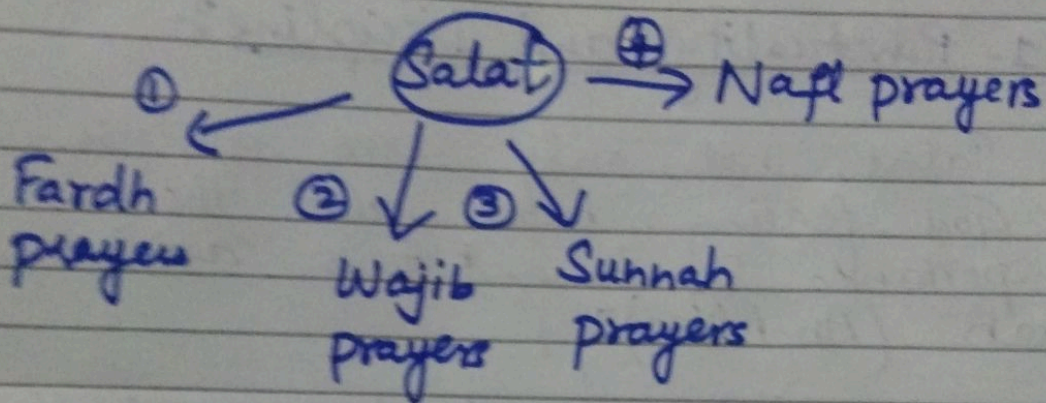 Salat
① Fardh
prayers
② Wajib
prayers
③ Sunnah
prayers
④ Nafl prayers